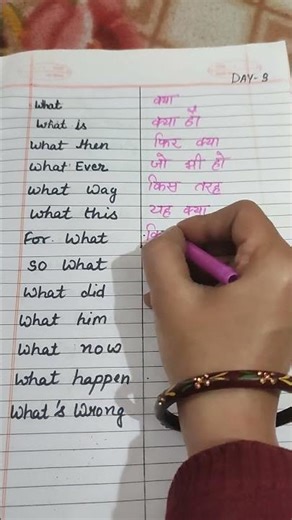 DAY-3
What क्या
What is क्या है
What then फिर क्या
What Ever जो भी हो
What Way किस तरह
What this यह क्या
For. What
So What
What did
What him
What now
What happen
What's Wrong